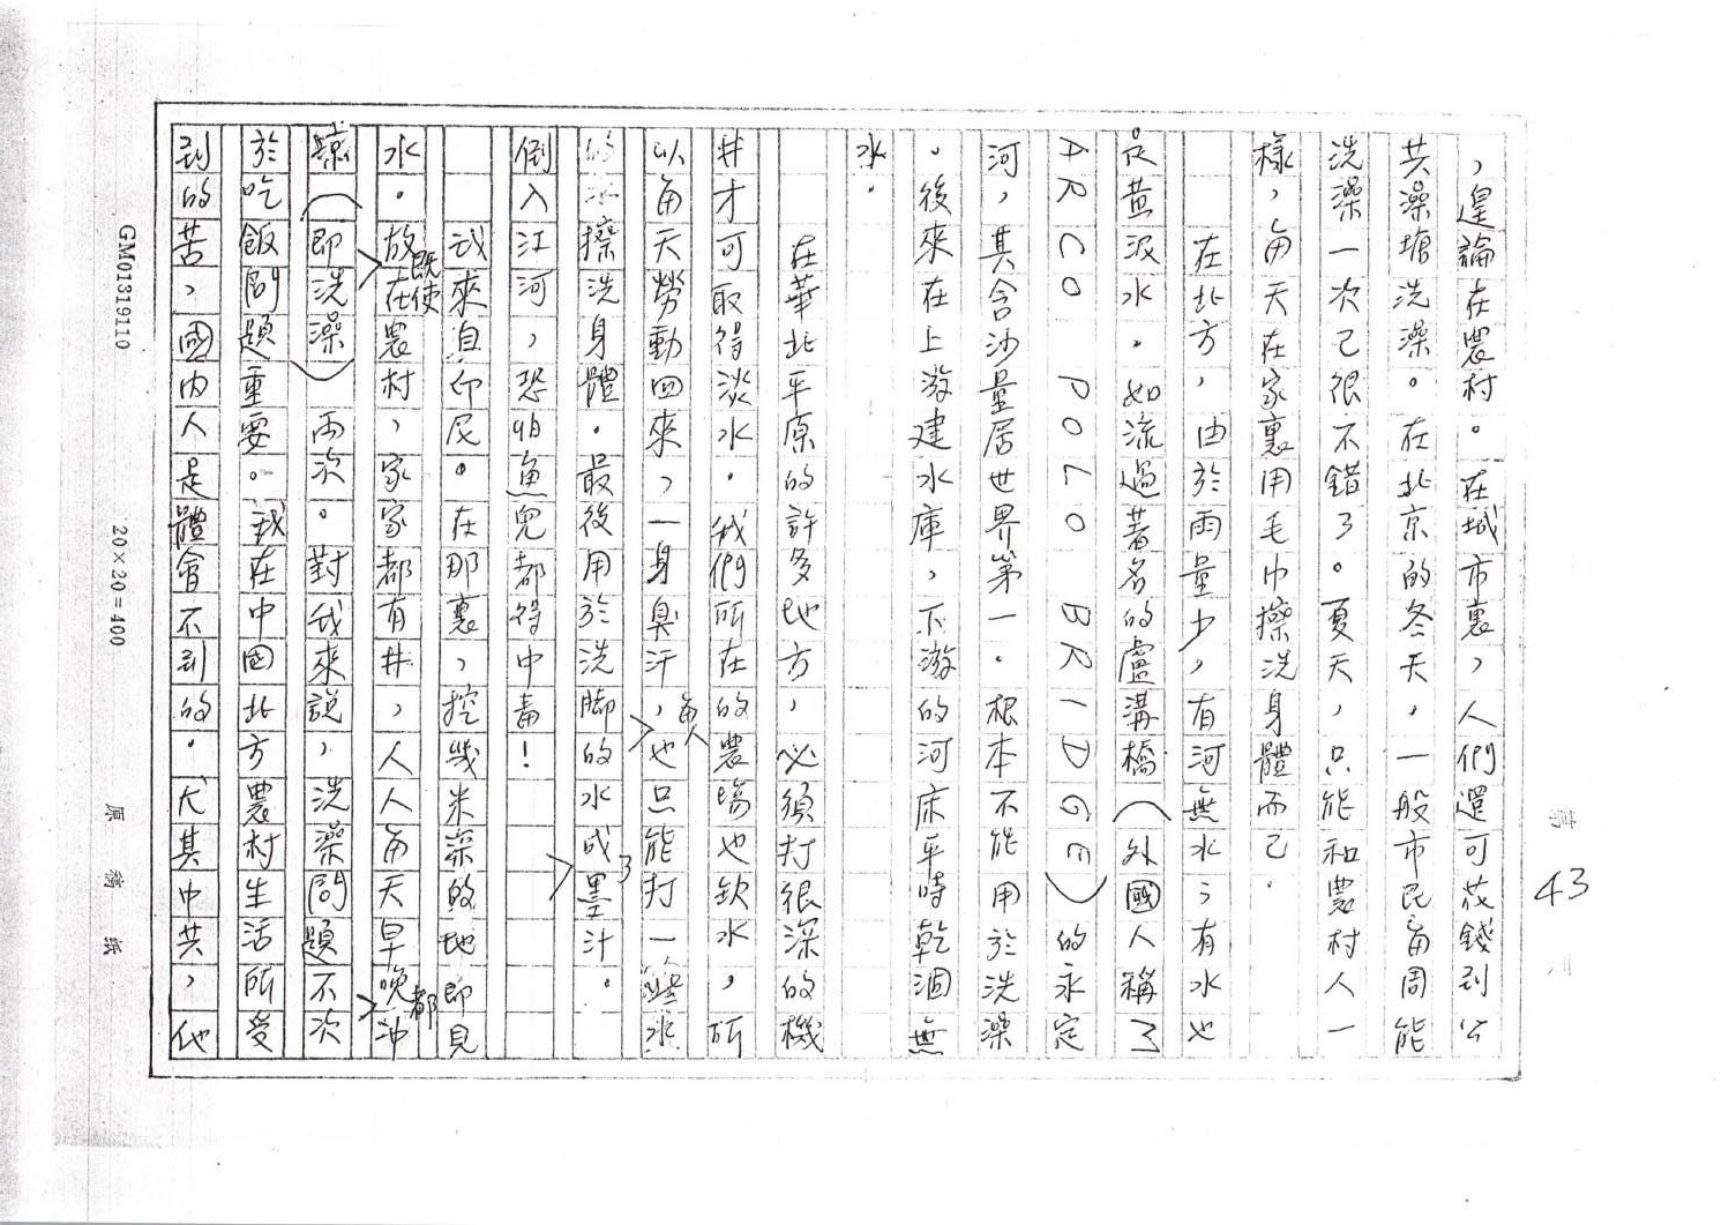 ，遑論在農村。在城市裏，人們還可花錢到公
共澡塘洗澡。在北京的冬天，一般市民每周能
洗澡一次已很不錯了。夏天，只能和農村人一
樣，每天在家裏用毛巾擦洗身體而已．
在北方，由於雨量少，有河無水；有水也
只黃泥水．如流過著名的盧溝橋（外國人稱了
ARCO POLO BRIDGE）的永定
河，其含沙量居世界第一．根本不能用於洗澡
。後來在上游建水庫，下游的河床平時乾涸無
水．
在華北平原的許多地方，必須打很深的機
井才可取得淡水．我們所在的農場也缺水，所
以每天勞動回來，一身臭汗，每人也只能打一些水
的水擦洗身體．最後用於洗脚的水成了墨汁．
倒入江河，恐怕魚兒都得中毒！
我來自印尼。在那裏，挖幾米深的地即見
水．放在既使農村，家家都有井，人人每天早晚都沖
涼（即洗澡）兩次。對我來說，洗澡問題不次
於吃飯問題重要。我在中國北方農村生活所受
到的苦，國內人是體會不到的．尤其中共，他
第 43 頁
GM01319110
20×20=400
原稿紙